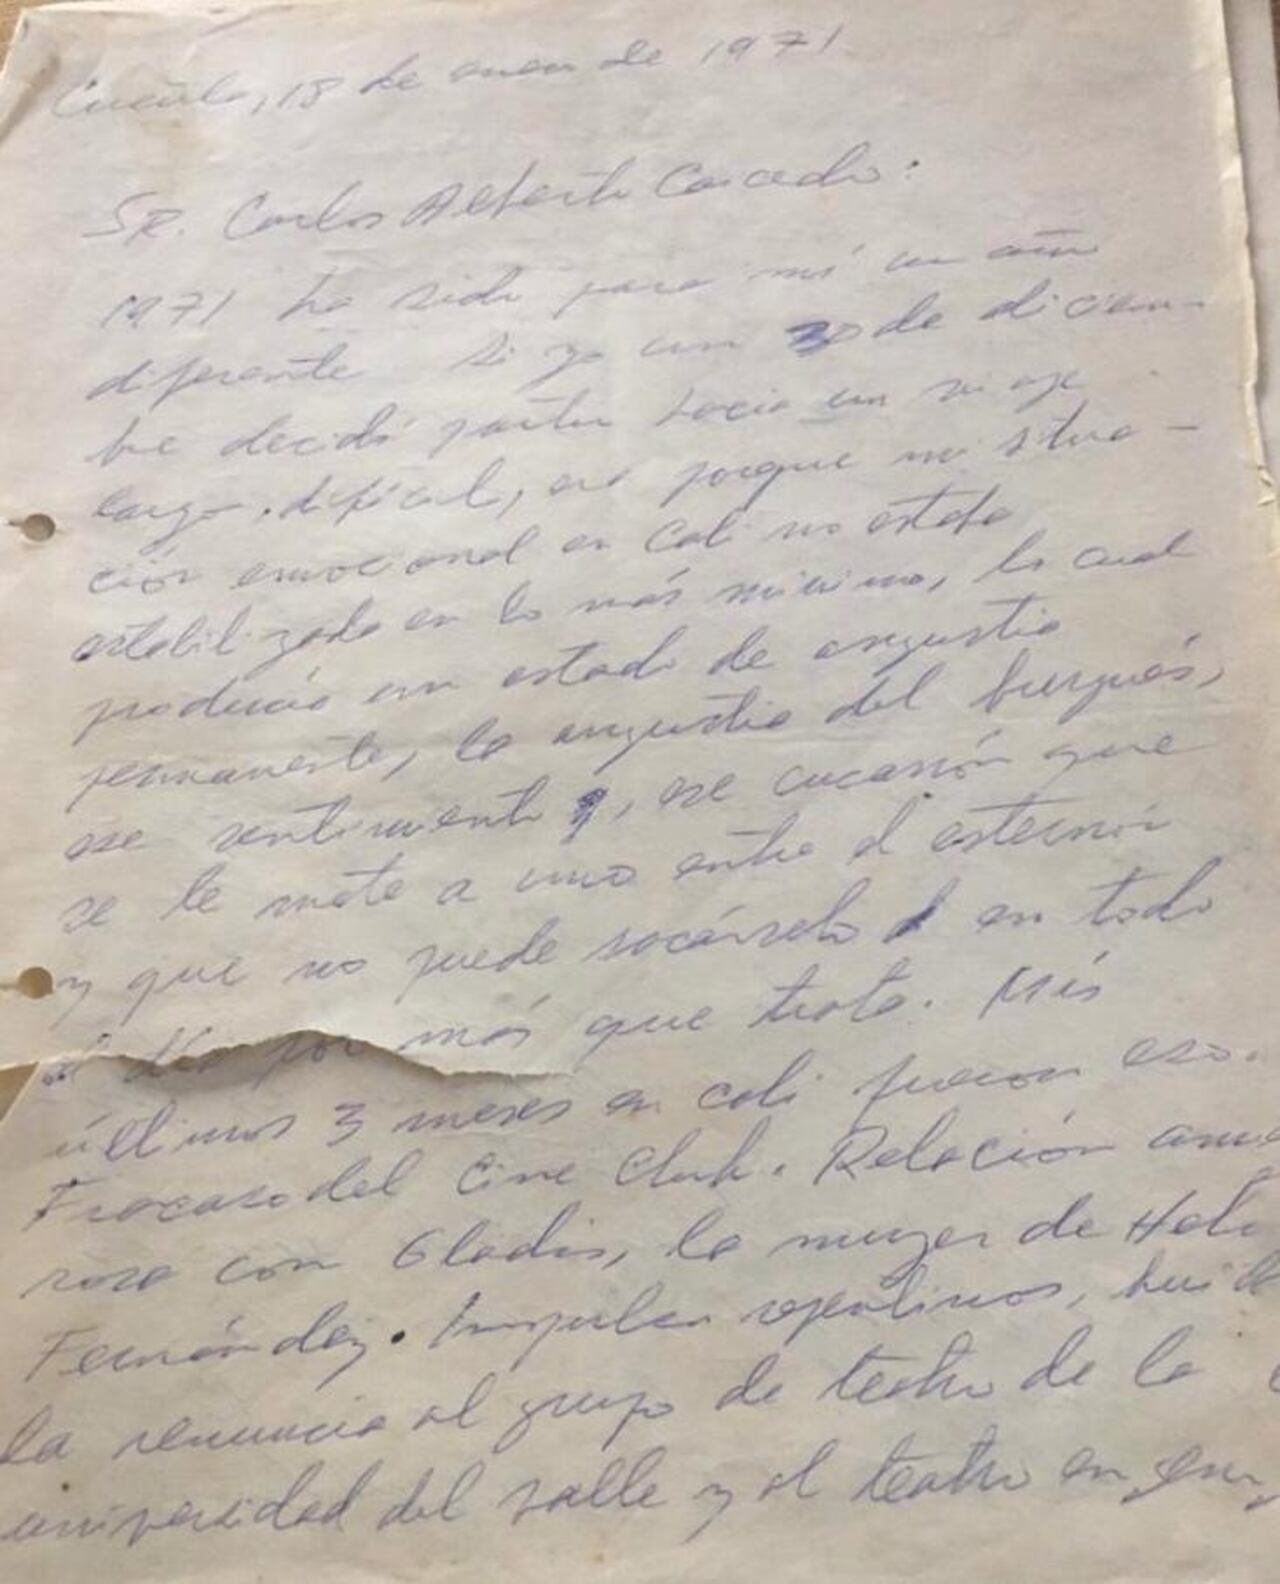 Cúcuta, 18 de enero de 1971
SR. Carlos Alberto Caicedo:
1971 ha sido para mí un año
diferente. Si yo un 30 de diciem-
bre decidí partir hacia un viaje
largo, difícil, era porque mi situa-
ción emocional en Cali no estaba
estabilizada en lo más mínimo, lo cual
producía un estado de angustia
permanente, la angustia del burgués,
ese sentimiento, ese cucarrón que
se le mete a uno entre el esternón
y que no puede sacárselo en todo
el día por más que trate. Mis
últimos 3 meses en Cali fueron eso.
Fracaso del Cine Club. Relación amo
rosa con Gladis, la mujer de
Fernández. Impulsos repentinos,
la renuncia al grupo de teatro de la
universidad del valle y al teatro en